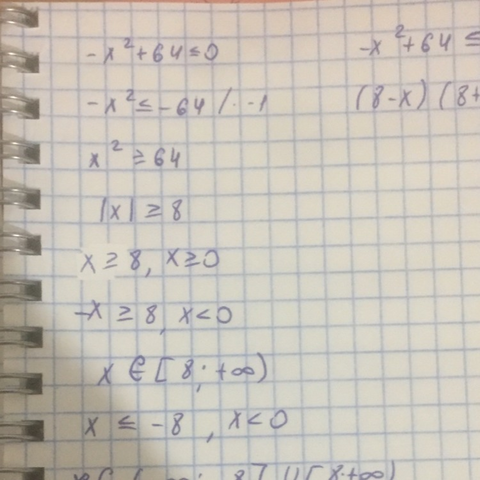 -x²+64≤0
-x²≤-64 /·-1
x²≥64
|x|≥8
x≥8, x≥0
-x≥8, x<0
x∈[8;+∞)
x≤-8, x<0
-x²+64≤
(8-x)(8+